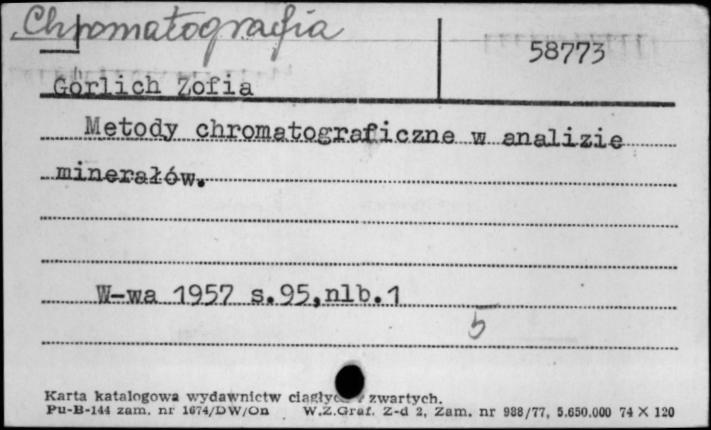 Chromatografia
58773
Görlich Zofia
Metody chromatograficzne w analizie
minerałów.
W-wa 1957 s.95,nlb.1
5
Karta katalogowa wydawnictw ciągłych zwartych.
Pu-B-144 zam. nr 1674/DW/On W.Z.Graf. Z-d 2, Zam. nr 988/77, 5.650.000 74 X 120